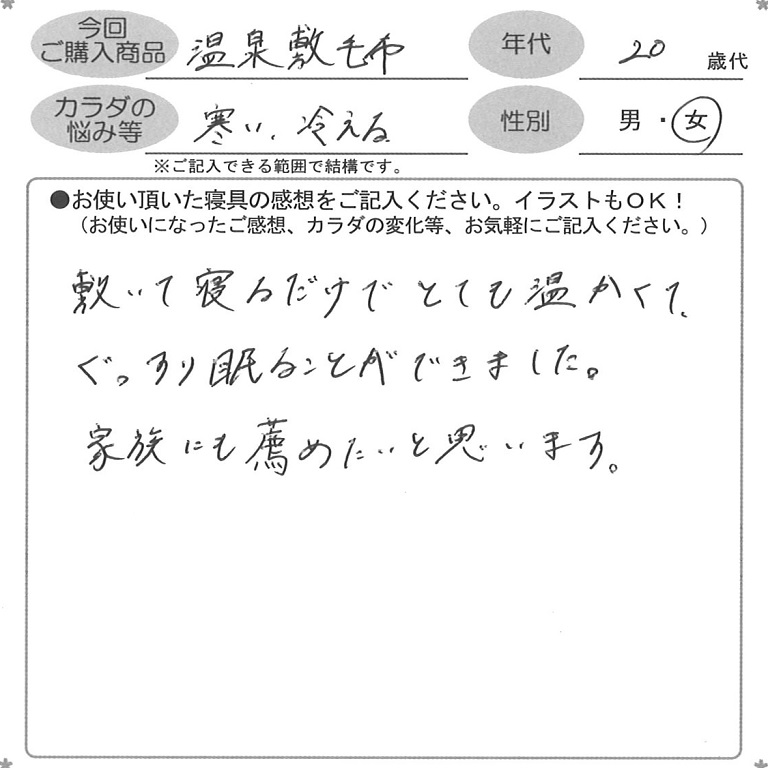 今回
ご購入商品 温泉敷毛布 年代 20 歳代
カラダの
悩み等 寒い、冷える 性別 男・女
※ご記入できる範囲で結構です。
●お使い頂いた寝具の感想をご記入ください。イラストもOK！
（お使いになったご感想、カラダの変化等、お気軽にご記入ください。）
敷いて寝るだけでとても温かくて、
ぐっすり眠ることができました。
家族にも薦めたいと思います。